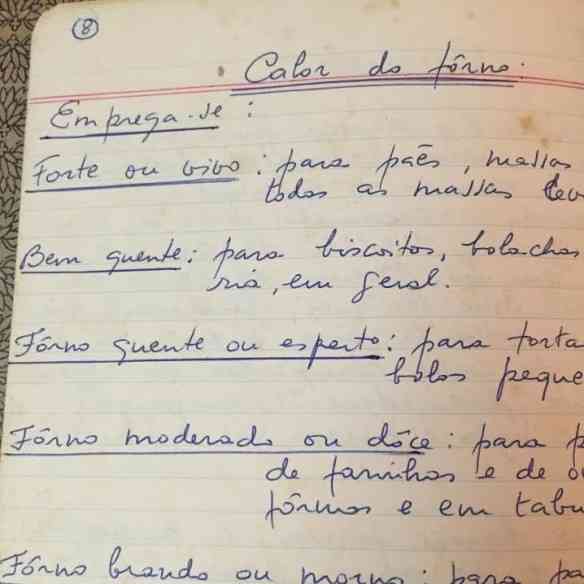 8
Calor do fôrno.
Emprega-se :
Forte ou vivo : para pães, massas
todas as massas lev
Bem quente : para biscoitos, bolachas
ria, em geral.
Fôrno quente ou esperto : para torta
bolos peque
Fôrno moderado ou dôce : para p
de farinhas e de o
fôrmas e em tabu
Fôrno brando ou morno : para pa